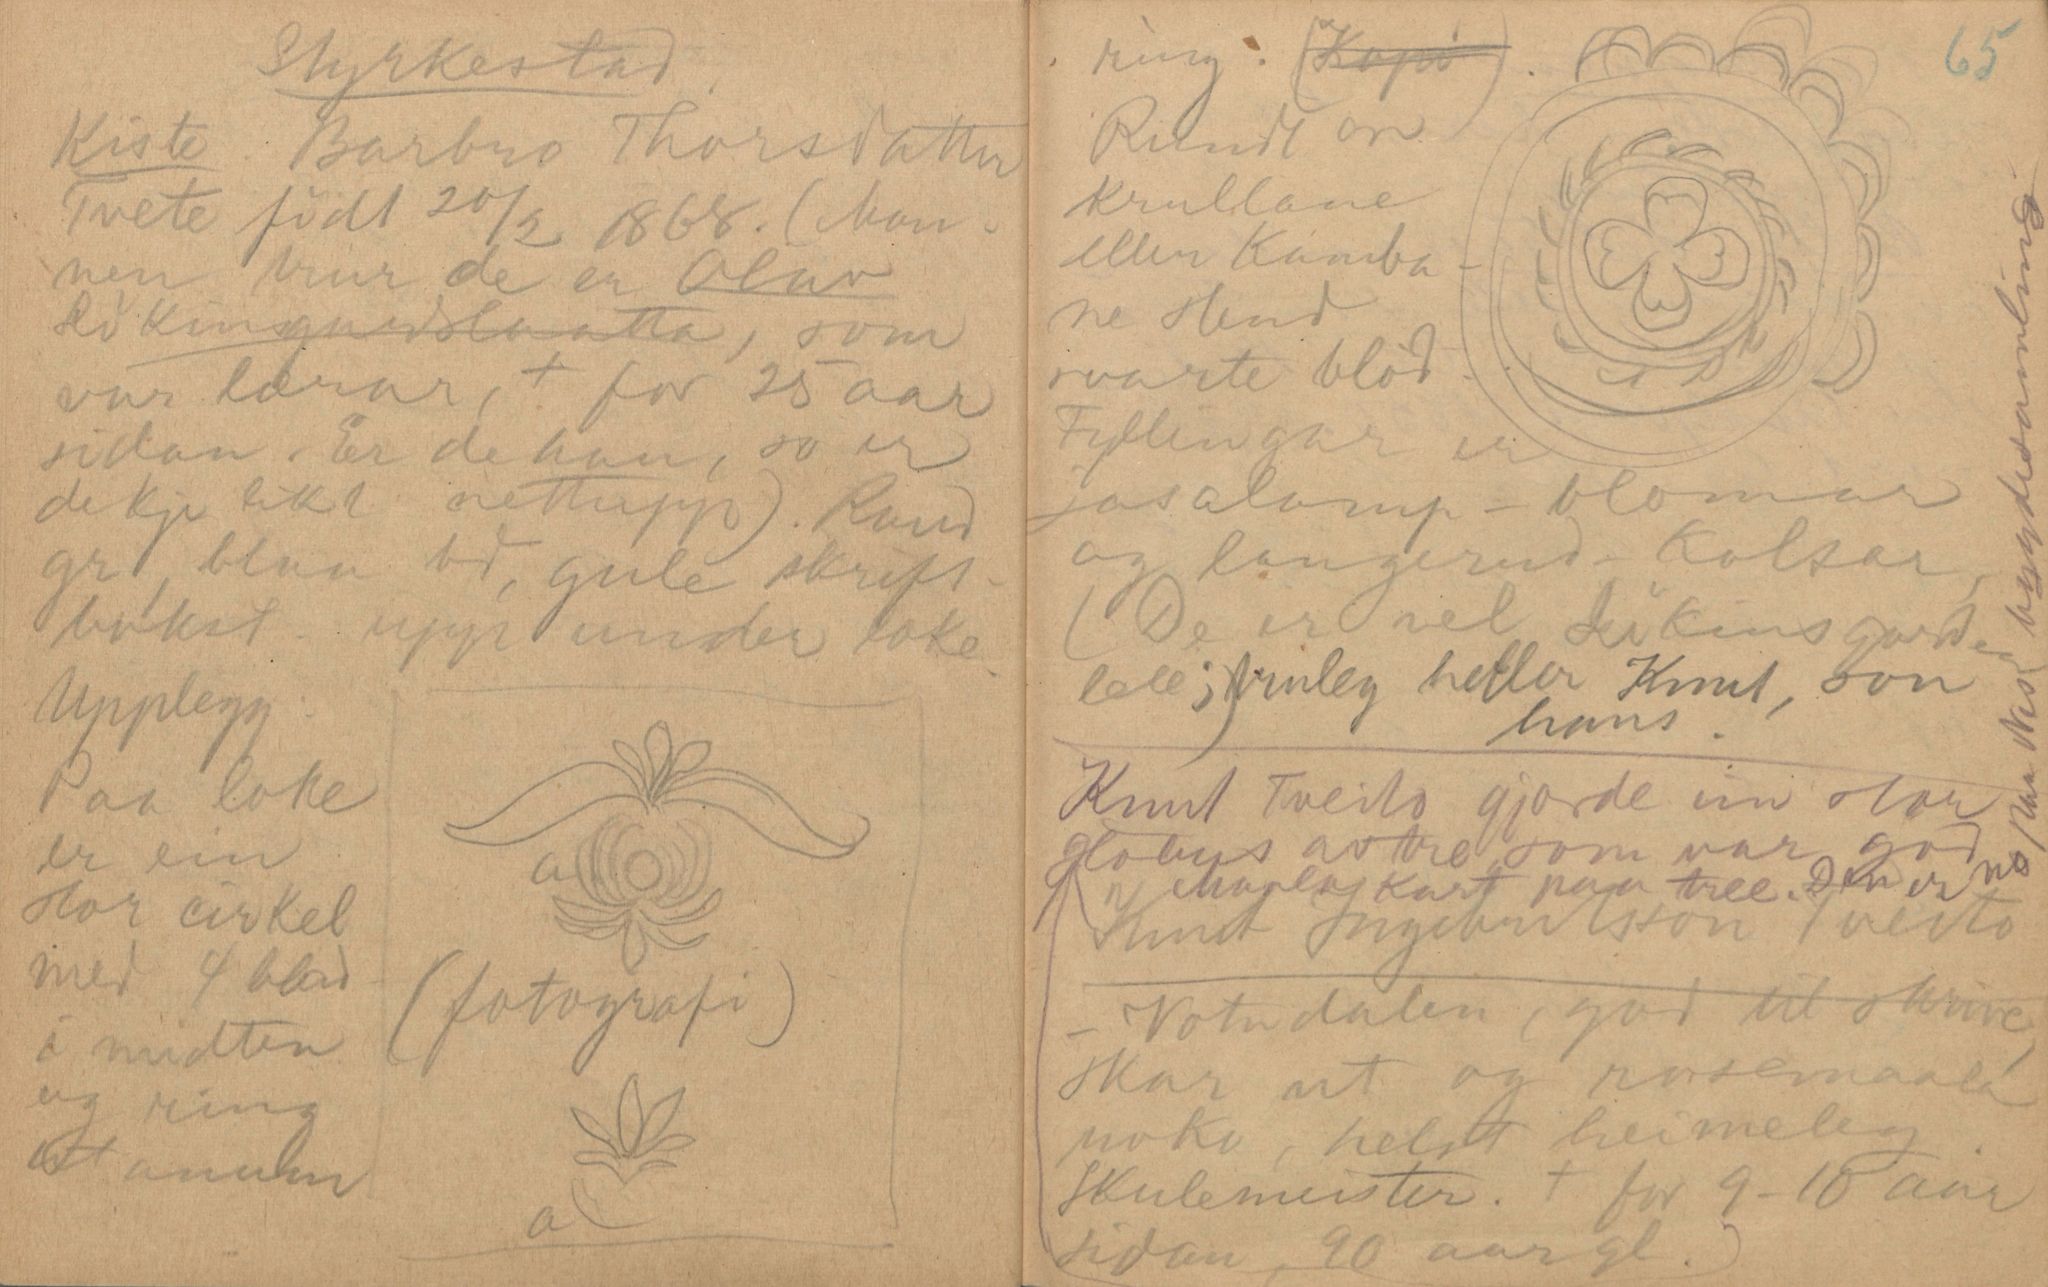 Styrkestad.
Kiste. Barbro Thorsdatter
Tvete födt 20/2 1868. (Man-
nen trur de er Olav
som
var lærar, † for 25 aar
sidan. Er de han, so er
dekje likt nettupp). Raud
gr, blaa bd, gule skrift-
bokst. upp under loke.
Upplegg.
Paa loke
er ein
stor cirkel
med 4 blad
i midten
og ring
att anum
a
(fotografi)
a
65
ring. (Kopi).
Rundt om
krullane
eller Kamba-
ne stend
svarte blöd.
Fyllingar er
josalamp-blomar
og langerud-Kolsar,
(De er vel
lell;) truleg heller Knut, son
hans.
Knut Tveito gjorde ein stor
globus av tre, som var god
og kart paa tree. Den er no
paa Nes bygdesamling
Knut Ingebretsson Tveito
- Votndalen, god til skrive,
skar ut og rosemaala
noko, helst heimeleg.
Skulemeister. † for 9-10 aar
sidan, 90 aar gl.)